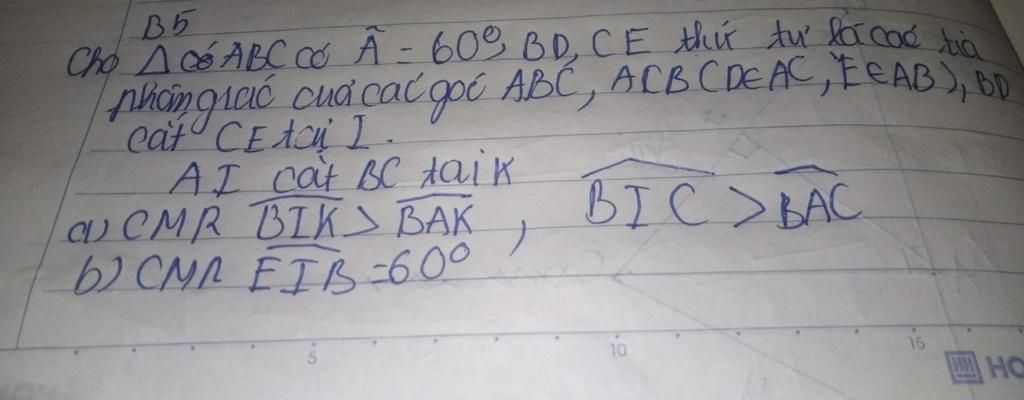 B5
Cho Δ có ABC có Â = 60°, BD, CE thứ tự là các tia
phân giác của các góc ABC, ACB (D∈AC, E∈AB), BD
cắt CE tại I.
AI cắt BC tại K
a) CMR BIK > BAK, BIC > BAC
b) CMR EIB = 60°
5 10 15 HO